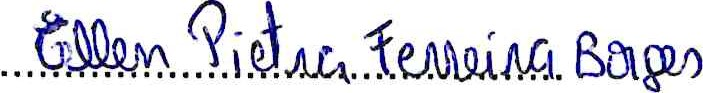 Ellen Pietra Ferreira Borges